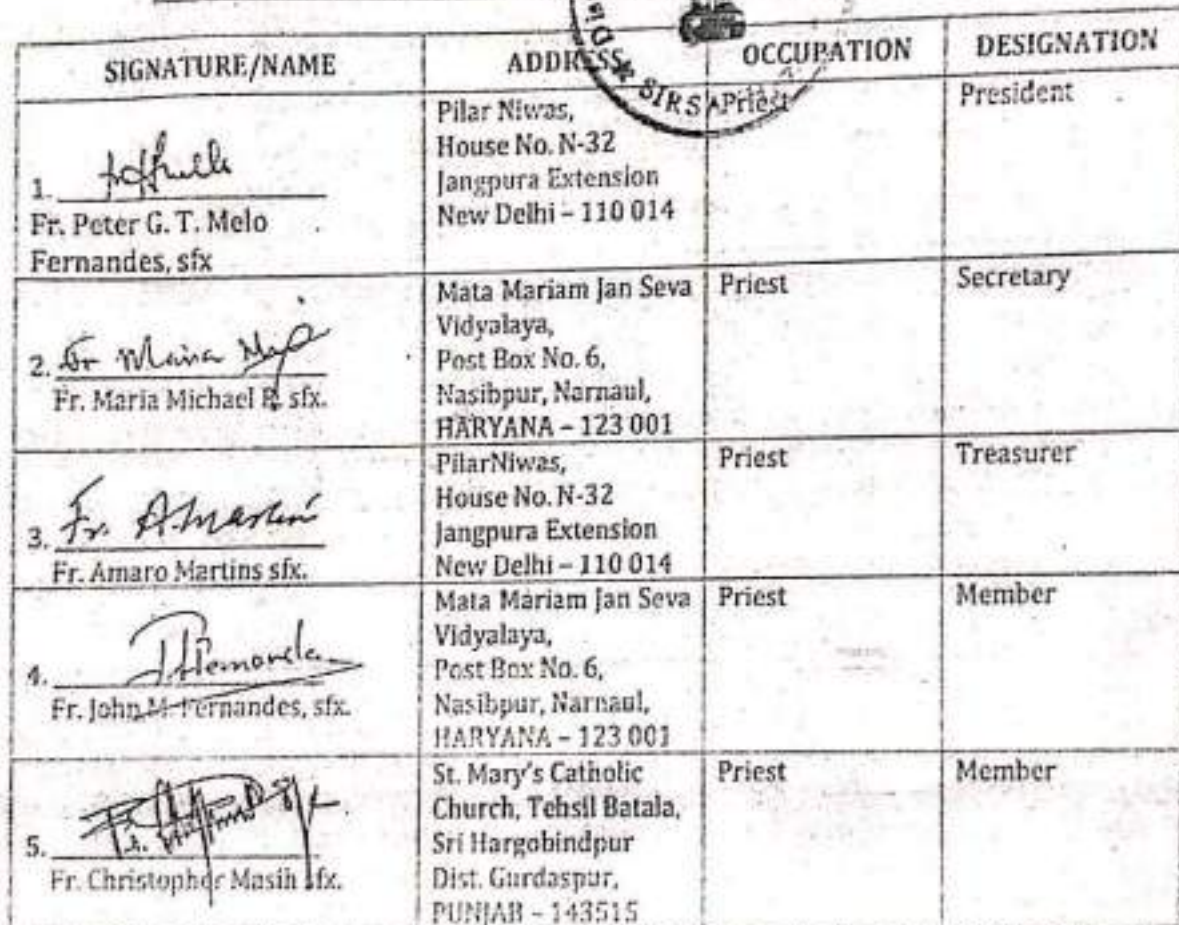 SIGNATURE/NAME
ADDRESS
OCCUPATION
DESIGNATION
SIRSA
1.
Fr. Peter G. T. Melo
Fernandes, sfx
Pilar Niwas,
House No. N-32
Jangpura Extension
New Delhi – 110 014
Priest
President
2. Fr Maria
Fr. Maria Michael R. sfx.
Mata Mariam Jan Seva
Vidyalaya,
Post Box No. 6,
Nasibpur, Narnaul,
HARYANA – 123 001
Priest
Secretary
3. Fr. A. Martins
Fr. Amaro Martins sfx.
PilarNiwas,
House No. N-32
Jangpura Extension
New Delhi – 110 014
Priest
Treasurer
4.
Fr. John M. Fernandes, sfx.
Mata Mariam Jan Seva
Vidyalaya,
Post Box No. 6,
Nasibpur, Narnaul,
HARYANA – 123 001
Priest
Member
5.
Fr. Christopher Masih sfx.
St. Mary's Catholic
Church, Tehsil Batala,
Sri Hargobindpur
Dist. Gurdaspur,
PUNJAB – 143515
Priest
Member